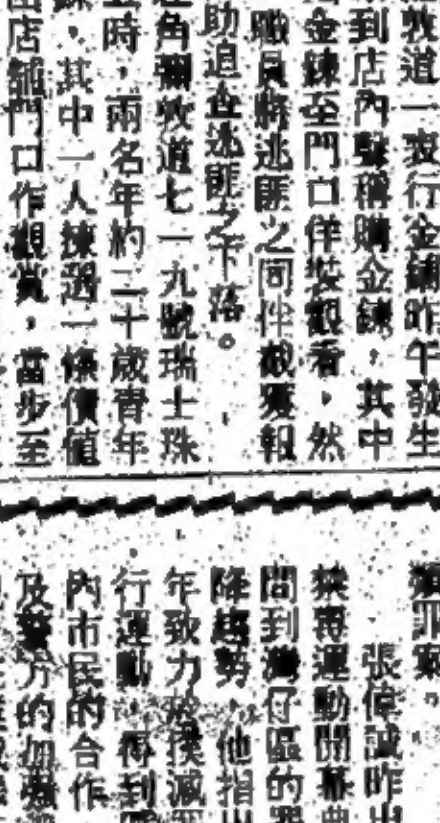 敦道一表行金鋪昨午發生
到店內聲稱購金鍊，其中
金鍊至門口佯裝觀看，然
職員將逃匪之同伴截獲報
助追查逃匪之下落。
角彌敦道七一九號瑞士珠
時，兩名年約二十歲青年
，其中一人揀選一條價值
出店舖門口作觀賞，當步至
罪案。
張偉誠昨出
運動開幕典
問到灣仔區的罪
降趨勢，他指出
年致力於撲滅罪
行運動，得到
內市民的合作，
及警方的加強